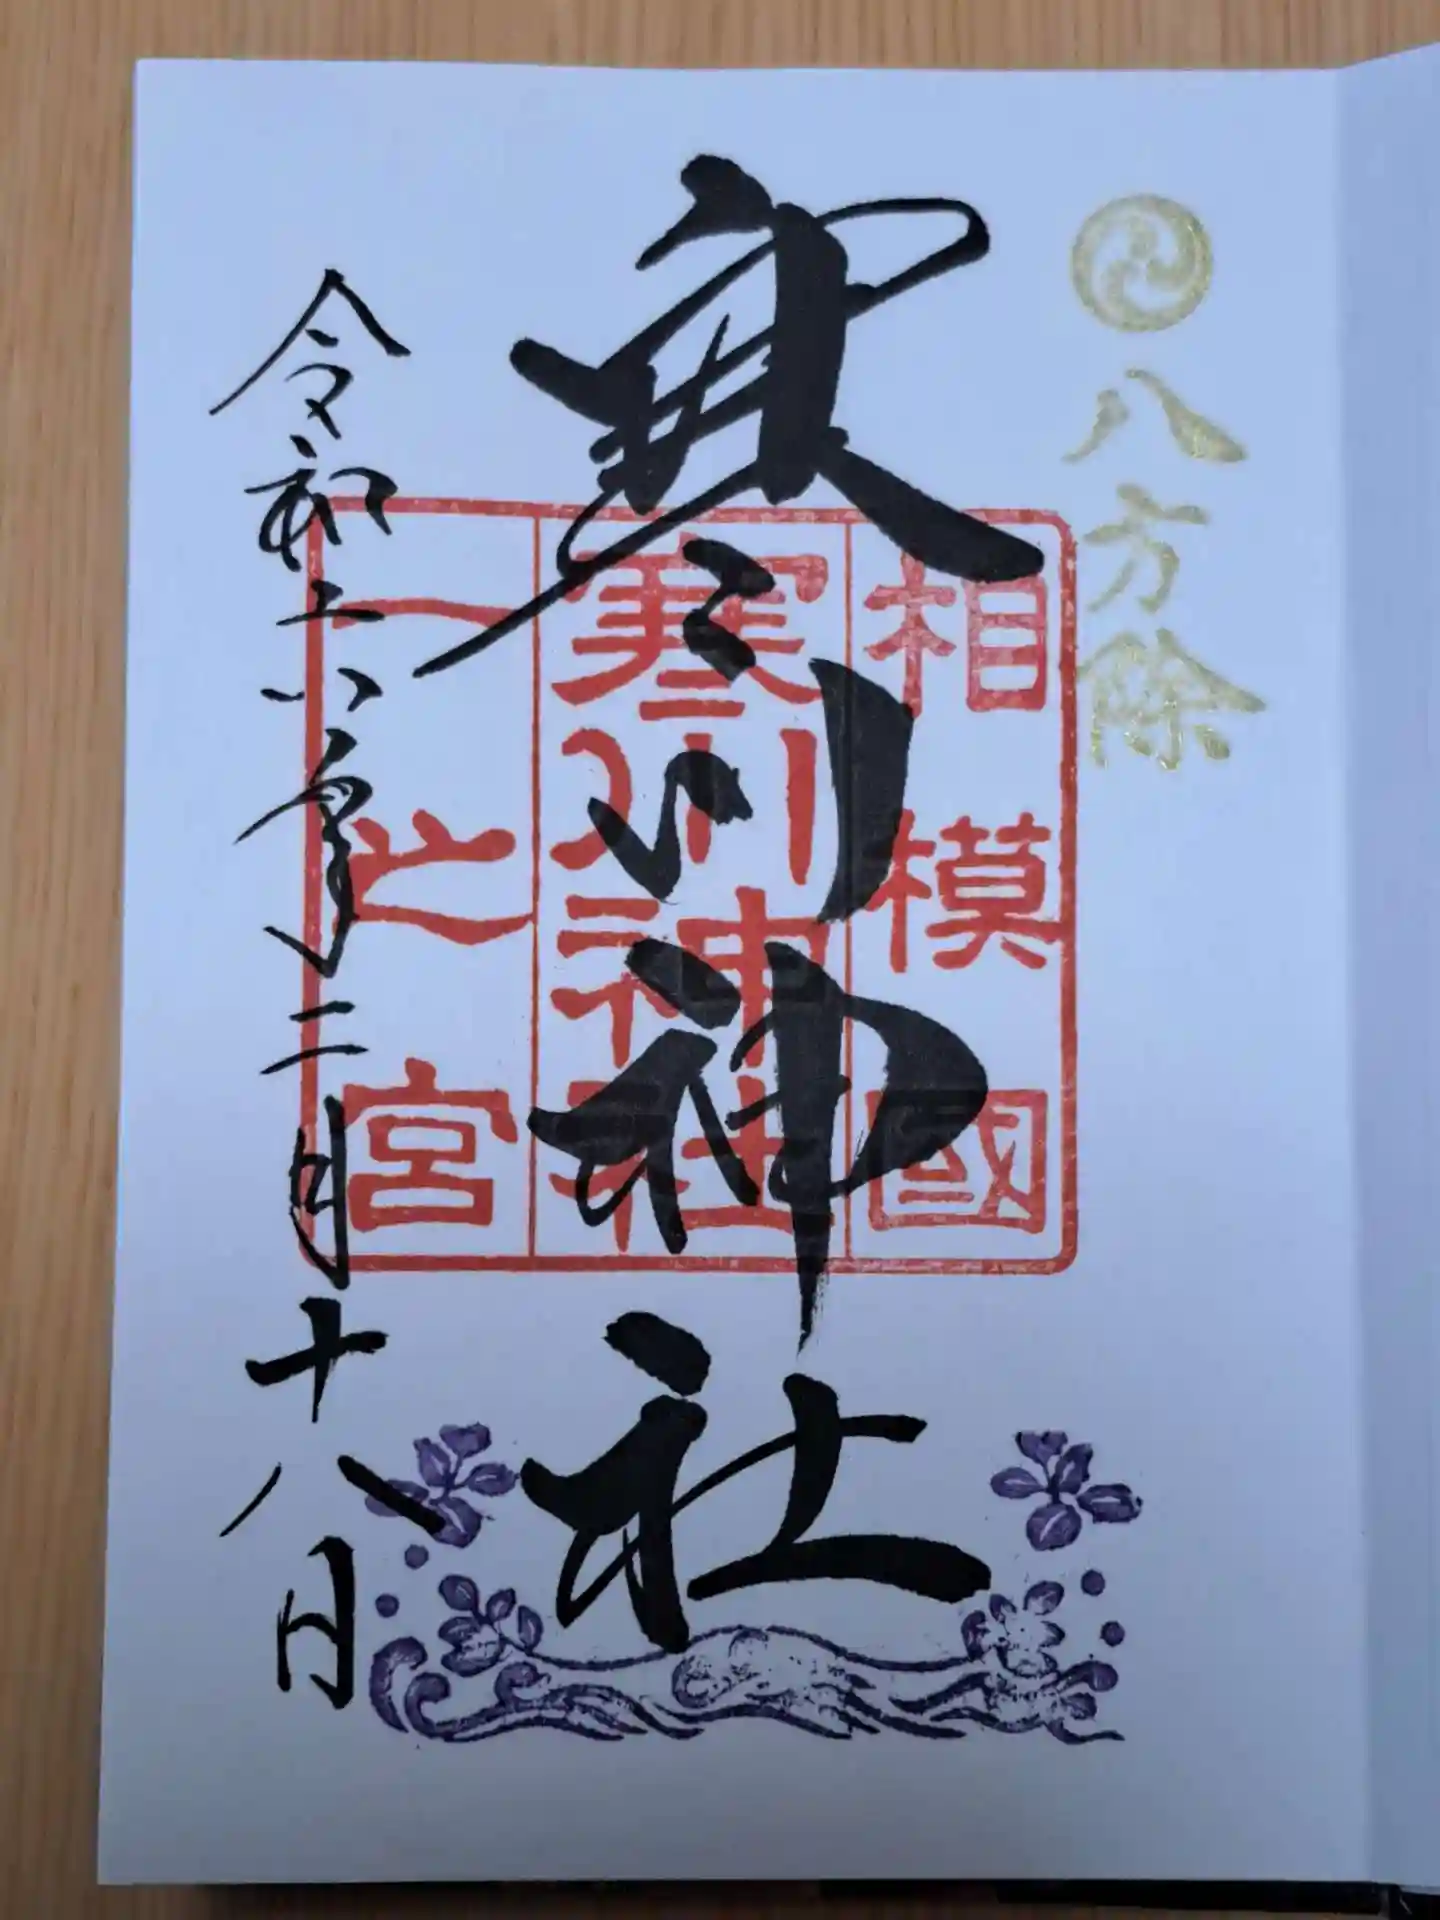 八方除
寒川神社
相模國
寒川神社
一之宮
令和六年二月十八日